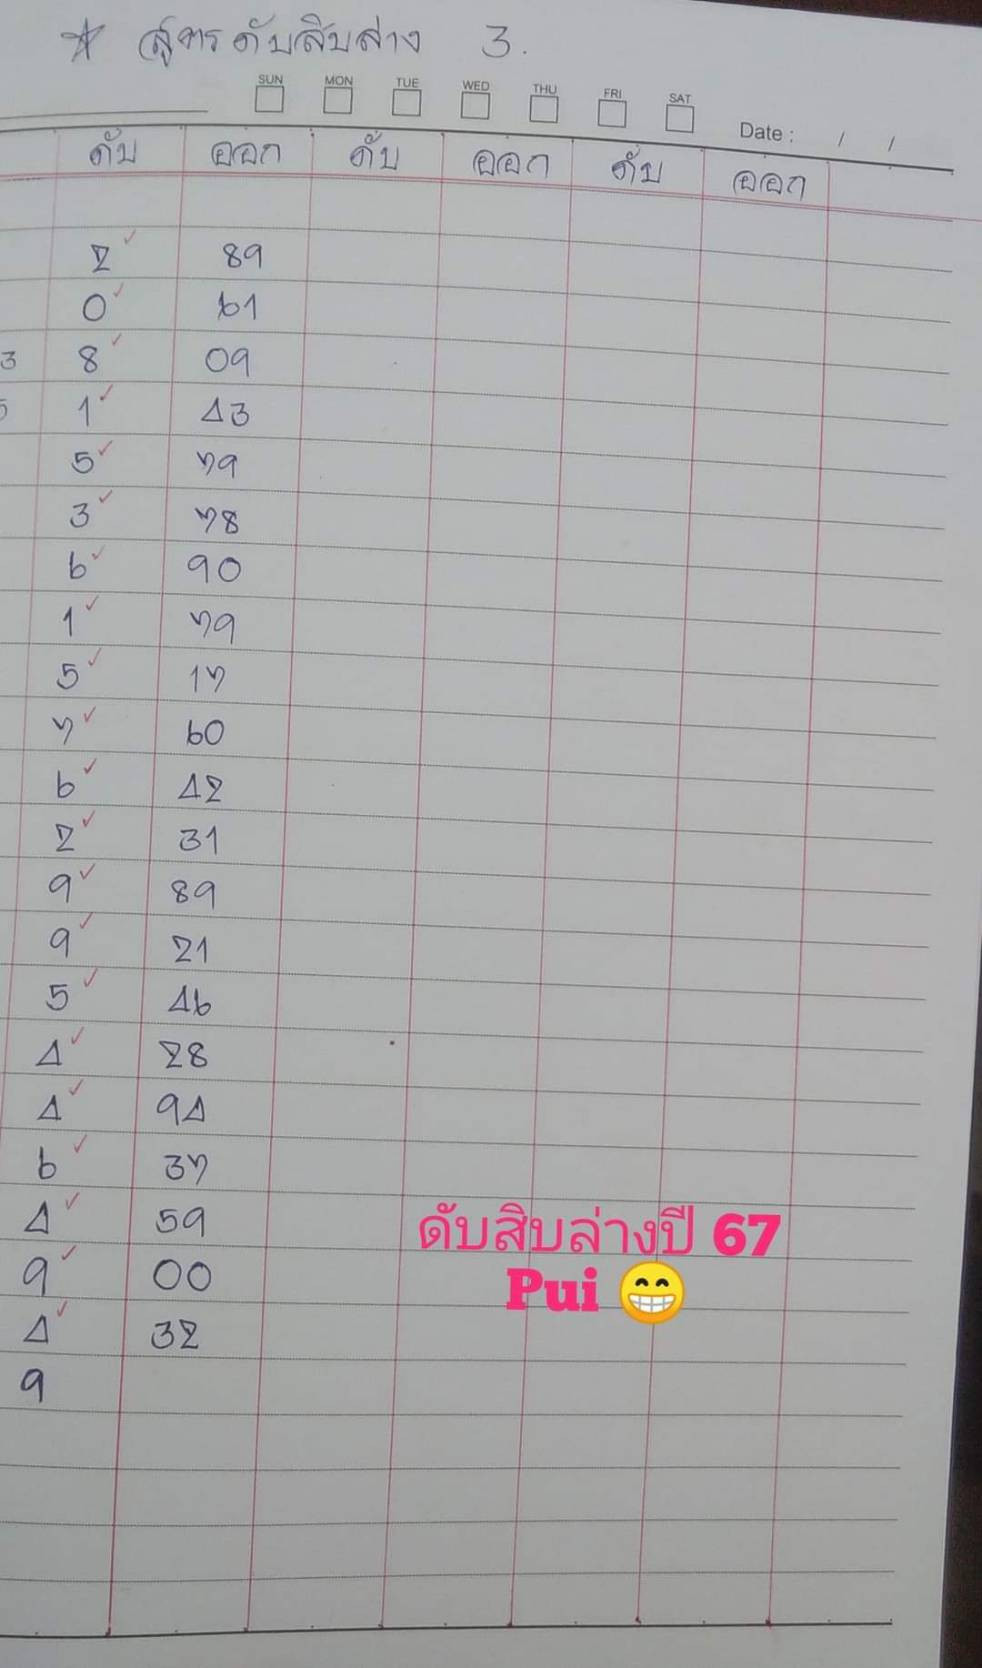 ☆ สูตรดับสิบล่าง 3.
SUN MON TUE WED THU FRI SAT
Date : / /
ดับ ออก ดับ ออก ดับ ออก
2 89
0 61
3 8 09
5 1 43
5 79
3 78
6 90
1 79
5 17
7 60
6 42
2 31
9 89
9 21
5 46
4 28
4 94
6 37
4 59
9 00
4 32
9
ดับสิบล่างปี 67
Pui 😁